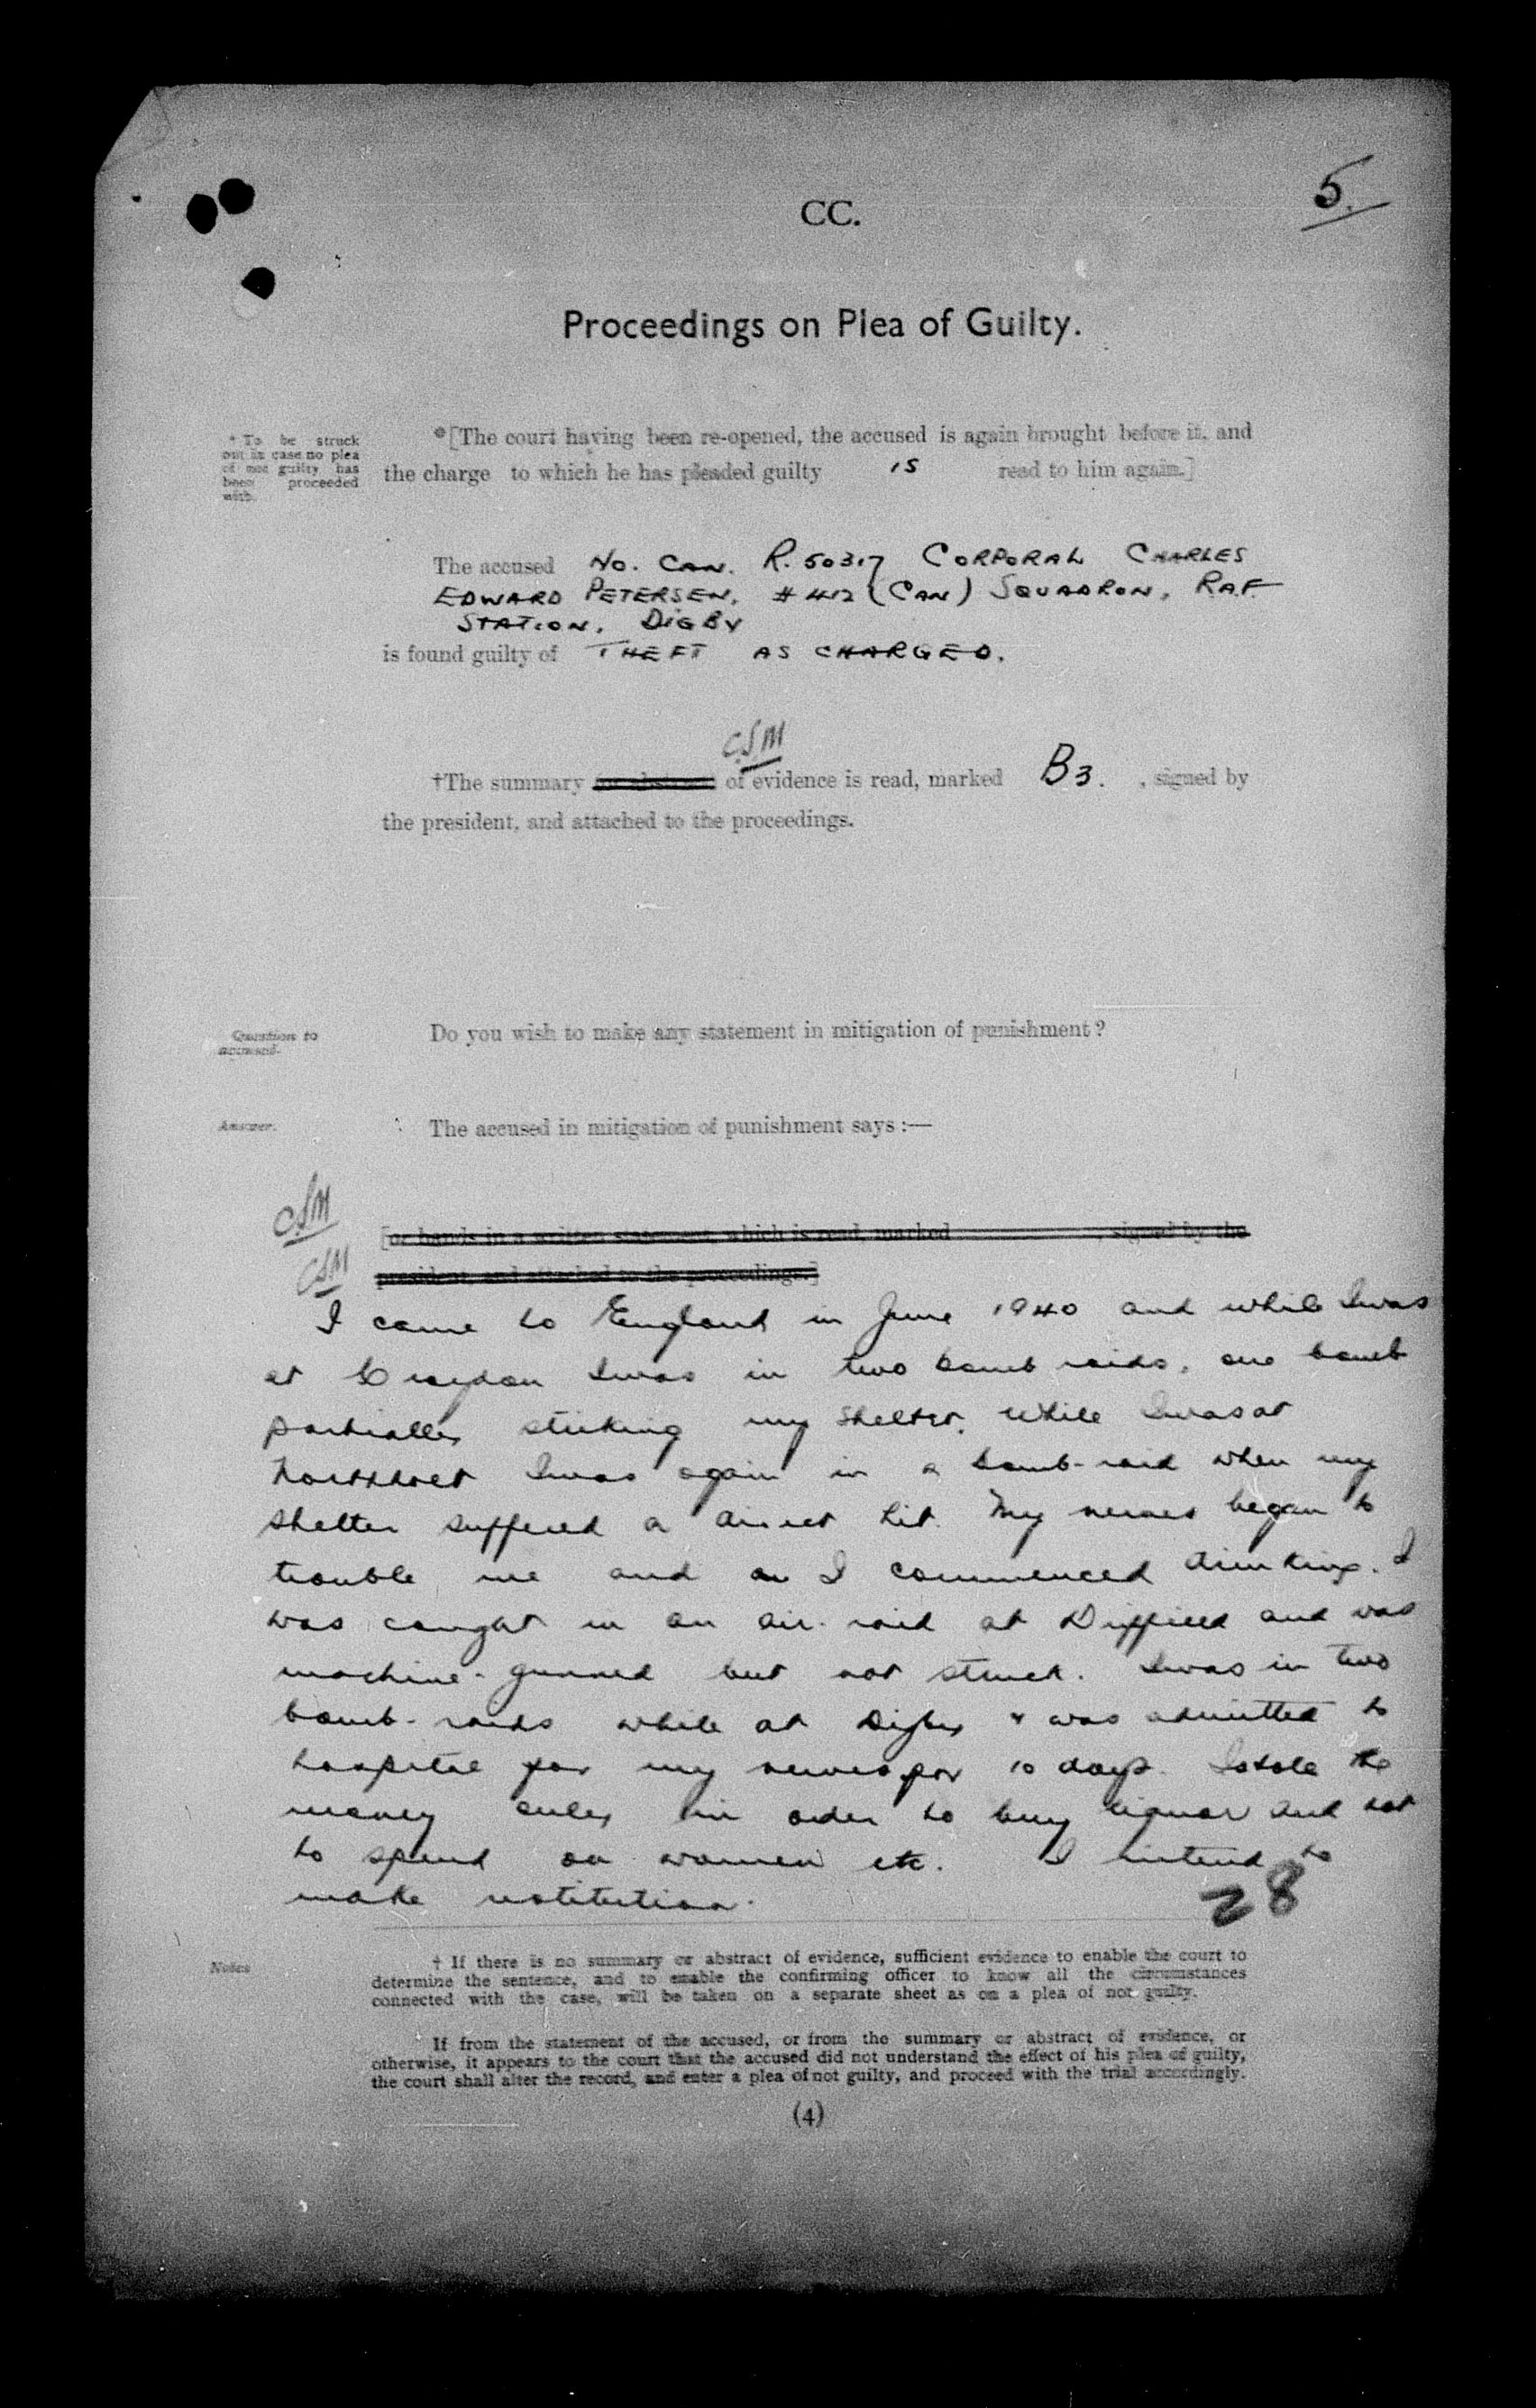 5.
CC.
Proceedings on Plea of Guilty.
* To be struck
out in case no plea
of not guilty has
been proceeded
with.
*[The court having been re-opened, the accused is again brought before it, and
the charge to which he has pleaded guilty is read to him again.]
The accused No. CAN. R.50317 CORPORAL CHARLES
EDWARD PETERSEN, #412 (CAN) SQUADRON, R.A.F.
STATION, DIGBY
is found guilty of THEFT AS CHARGED.
CSM
†The summary or abstract of evidence is read, marked B3. , signed by
the president, and attached to the proceedings.
Question to
accused.
Do you wish to make any statement in mitigation of punishment?
Answer.
The accused in mitigation of punishment says :—
CSM
[or hands in a written statement, which is read, marked , signed by the
CSM
president, and attached to the proceedings.]
I came to England in June 1940 and while I was
at Croydon I was in two bomb raids, one bomb
partially striking my shelter. While I was at
Northholt I was again in a bomb-raid when my
shelter suffered a direct hit. My nerves began to
trouble me and I commenced drinking. I
was caught in an air-raid at Driffield and was
machine-gunned but not struck. I was in two
bomb-raids while at Digby & was admitted to
hospital for my nerves for 10 days. I stole the
money only in order to buy liquor and not
to spend on women etc. I intend to
make restitution.
28
Notes
† If there is no summary or abstract of evidence, sufficient evidence to enable the court to
determine the sentence, and to enable the confirming officer to know all the circumstances
connected with the case, will be taken on a separate sheet as on a plea of not guilty.
If from the statement of the accused, or from the summary or abstract of evidence, or
otherwise, it appears to the court that the accused did not understand the effect of his plea of guilty,
the court shall alter the record, and enter a plea of not guilty, and proceed with the trial accordingly.
(4)